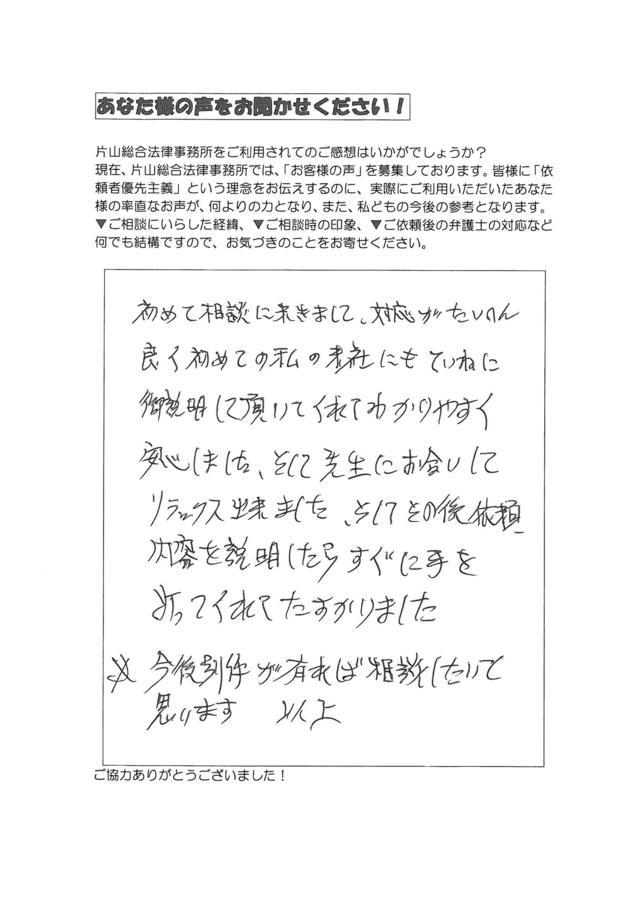 あなた様の声をお聞かせください！
片山総合法律事務所をご利用されてのご感想はいかがでしょうか？
現在、片山総合法律事務所では、「お客様の声」を募集しております。皆様に「依
頼者優先主義」という理念をお伝えするのに、実際にご利用いただいたあなた
様の率直なお声が、何よりの力となり、また、私どもの今後の参考となります。
▼ご相談にいらした経緯、▼ご相談時の印象、▼ご依頼後の弁護士の対応など
何でも結構ですので、お気づきのことをお寄せください。
初めて相談に来きまして、対応がたいへん
良く初めての私の会社にもていねに
御説明して頂いてくれてわかりやすく
安心しました、そして先生にお会いして
リラックス出来ました、そしてその後依頼
内容を説明したらすぐに手を
打ってくれてたすかりました
☆ 今後別件が有れば相談したいと
思います 以上
ご協力ありがとうございました！